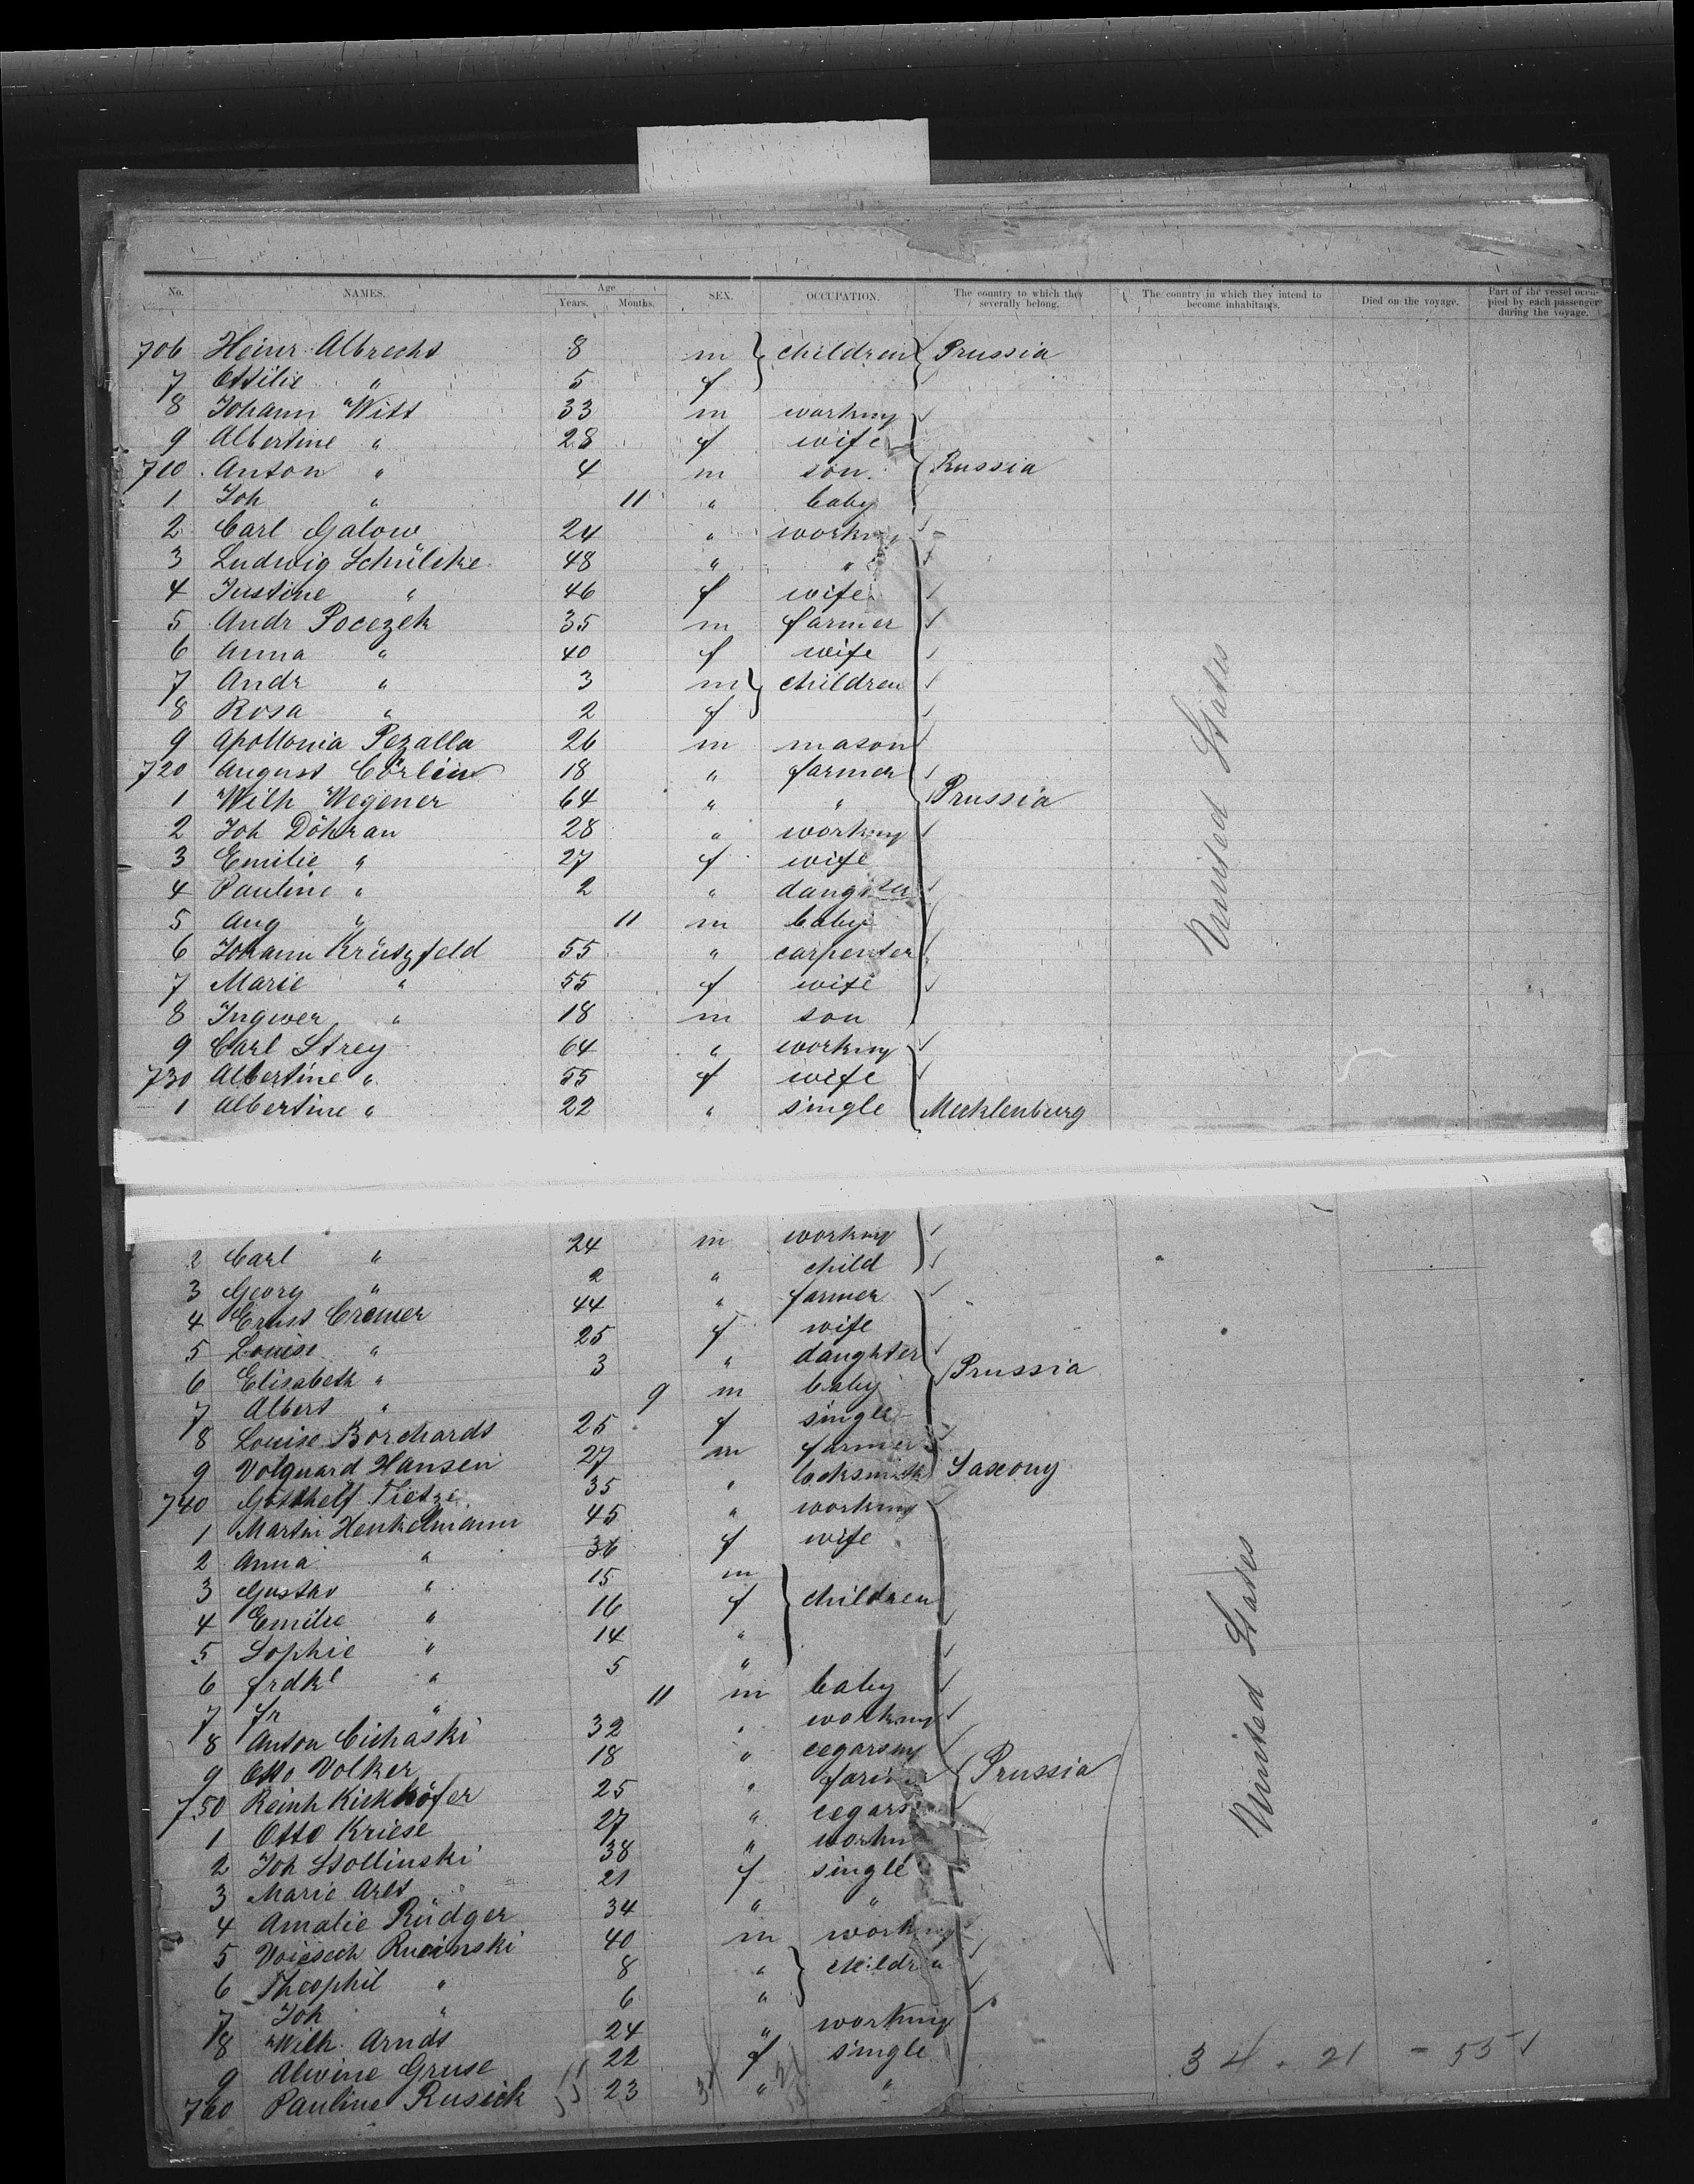 No. NAMES. Age Years. Months. SEX. OCCUPATION. The country to which they severally belong. The country in which they intend to become inhabitants. Died on the voyage. Part of the vessel occupied by each passenger during the voyage.
706 Heinr Albrecht 8 m } children Prussia
7 Ottilie " 5 f
8 Johann Witt 33 m working
9 Albertine " 28 f wife
710 Anton " 4 m son Russia
1 Joh " 11 " baby
2 Carl Galow 24 " working
3 Ludwig Schülcke 48 " "
4 Justine " 46 f wife
5 Andr Pocezek 35 m farmer
6 Anna " 40 f wife
7 Andr " 3 m } children
8 Rosa " 2 f
9 Apollonia Pezalla 26 m mason
720 August Cörlin 18 " farmer
1 Wilh Wegener 64 " " Prussia
2 Joh Döhran 28 " working
3 Emilie " 27 f wife
4 Pauline " 2 " daughter
5 Aug " 11 m baby
6 Johann Krützfeld 55 " carpenter
7 Marie " 55 f wife
8 Ingwer " 18 m son
9 Carl Strey 64 " working
730 Albertine " 55 f wife
1 Albertine " 22 " single Mecklenburg
United States
2 Carl " 24 m working
3 Georg " 2 " child
4 Ernst Cremer 44 " farmer
5 Louise " 25 f wife
6 Elisabeth " 3 " daughter Prussia
7 Albert " 9 m baby
8 Louise Borchardt 25 f single
9 Volquard Hansen 27 m farmer
740 Gotthelf Tietze 35 " locksmith Saxony
1 Martin Henkelmann 45 " working
2 Anna " 36 f wife
3 Gustav " 15 m } children
4 Emilie " 16 f
5 Sophie " 14 "
6 frdke " 5 "
7 fr " 11 m baby
8 Anton Cichaski 32 " working
9 Otto Volker 18 " cegarsm
750 Reinh Kickhöfer 25 " farmer Prussia
1 Otto Kriese 27 " cegars
2 Joh Stollinski 38 " workin
3 Marie Arlt 21 f single
4 Amalie Rüdger 34 " "
5 Voicsech Rucinski 40 m working
6 Theophil " 8 " } children
7 Joh " 6 "
8 Wilh. Arndt 24 " working
9 Alwine Gruse 22 f single
760 Pauline Rusick 23 " "
United States
34 + 21 = 55